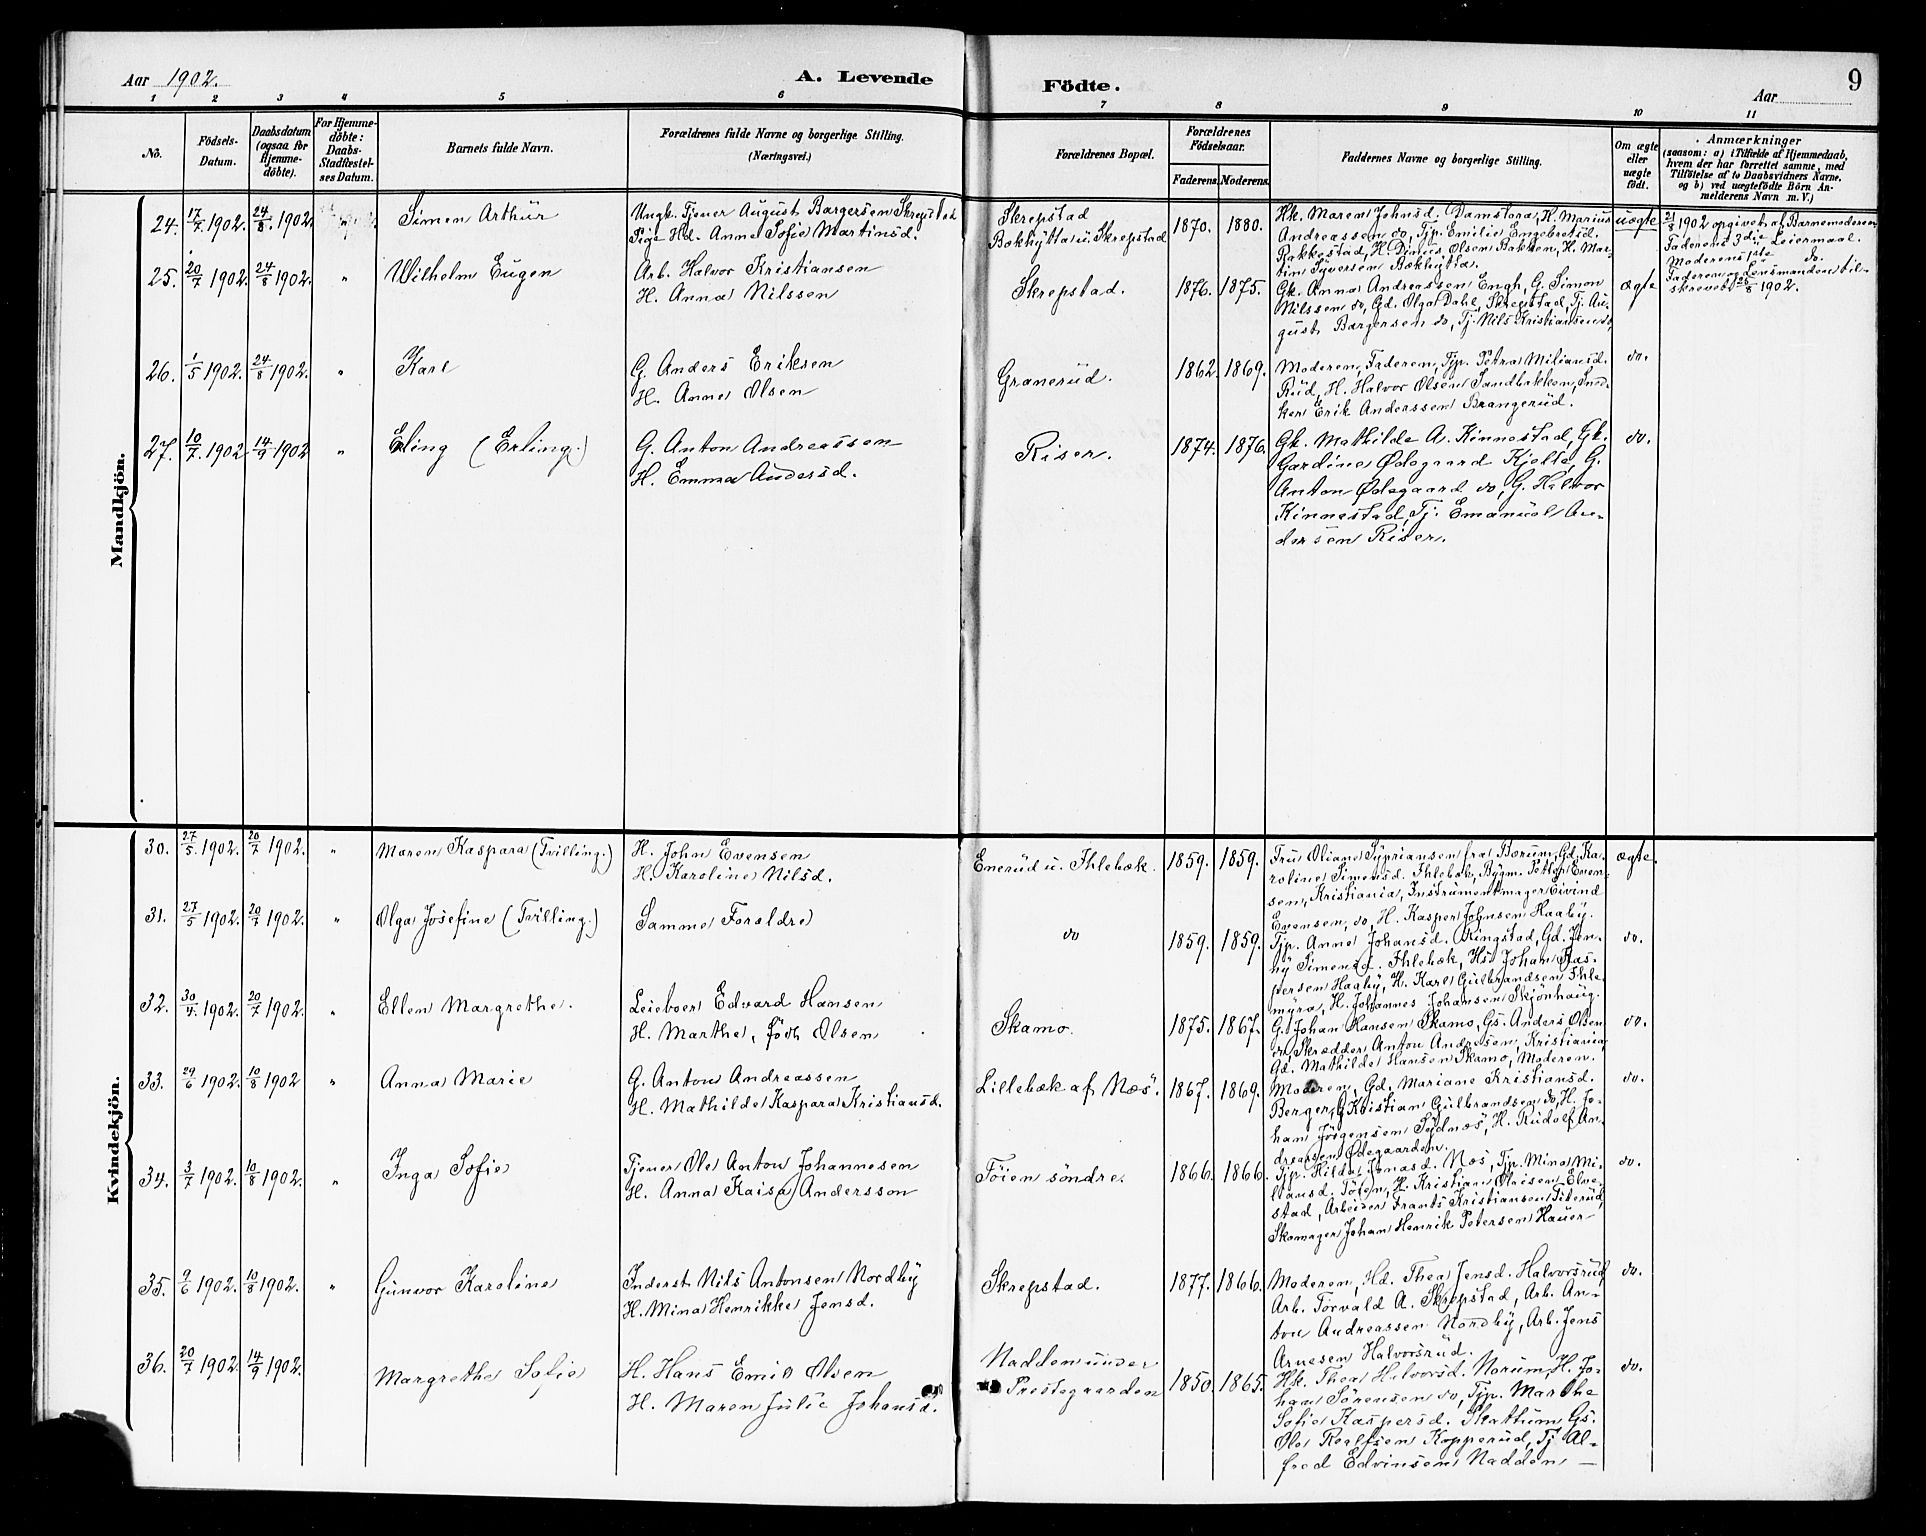 Aar 1902. A. Levende Födte. Aar 9
1 2 3 4 5 6 7 8 9 10 11
No.
Födsels-Datum.
Daabsdatum (ogsaa for Hjemme-döbte).
For Hjemme-döbte: Daabs-Stadfæstel-ses Datum.
Barnets fulde Navn.
Forældrenes fulde Navne og borgerlige Stilling. (Næringsvei.)
Forældrenes Bopæl.
Forældrenes Födselsaar.
Faderens. Moderens.
Faddernes Navne og borgerlige Stilling.
Om ægte eller uægte födt.
Anmærkninger
(saasom: a) i Tilfælde af Hjemmedaab,
hvem der har forrettet samme, med
Tilföielse af to Daabsvidners Navne,
og b) ved uægtefödte Börn An-
melderens Navn m. V.)
Mandkjön.
24. 17/7 1902. 24/8 1902. Simen Arthur
Ungk. Tjener August Børgersen Skrepstad
Pige Hd. Anne Sofie Martinsd.
Skrepstad
Bækhytta u. Skrepstad
1870. 1880.
Hk. Maren Johnsd. Damstora, H. Marius
Andreassen do, Tjp. Emilie Engebretsd.
Rakkestad, H. Olsen Bakken, H. Mar-
tin Syversen Bækhytta.
uægte
21/8 1902 opgivet af Barnemoderen
Faderens 3die Leiermaal.
Moderens 1ste do.
Faderen og Lensmanden til-
skrevet 26/8 1902.
25. 20/7 1902. 24/8 1902. " Wilhelm Eugen
Arb. Halvor Kristiansen
H. Anna Nilssen
Skrepstad. 1876. 1875.
Gk. Anna Andreassen Engh, G. Simon
Nilssen do, Gd. Olga Dahl, Skrepstad, Tj. Au-
gust Børgersen do, Tj. Nils Kristiansen do,
ægte
26. 1/5 1902. 24/8 1902. " Karl
G. Anders Eriksen
H. Anne Olsen
Granerud. 1862. 1869.
Moderen, Faderen, Tjp. Petra Miliansd.
Rud, H. Halvor Olsen Sandbakken, Snek-
ker Erik Anderssen Brangerud.
do.
27. 10/7. 1902 14/9 1902 " Eling (Erling.)
G. Anton Andreassen
H. Emma Andersd.
Riser. 1874. 1876.
Gk. Mathilde A. Kinnestad, Gk.
Gardine Ødegaard Kjelle, G.
Anton Ødegaard do, G. Halvor
Kinnestad, Tj. Emanuel An-
dersen Riser.
do.
Kvindekjön.
30. 27/5. 1902. 20/7 1902. " Maren Kaspara (Tvilling.)
H. John Evensen
H. Karoline Nilsd.
Enerud u. Ihlebæk. 1859. 1859.
Fru Oliane Sypriansen fra Bærum, Gd. Ka-
roline Simensd. Ihlebæk, Bygm. Petter Even-
sen, Kristiania, Instrumentmager Eivind
Evensen, do, H. Kasper Johnsen Haaby.
ægte.
31. 27/5 1902. 20/7 1902. " Olga Josefine (Tvilling.)
Samme Forældre
do 1859. 1859.
Tjp. Anne Johansd. Ringstad, Gd. Jen-
ny Simensd. Ihlebæk, Hs. Johan Kas-
persen Haaby, H. Karl Gulbrandsen Ihle-
myra, H. Johannes Johansen Skjönhaug.
do.
32. 30/4 1902. 20/7 1902. " Ellen Margrethe.
Leieboer Edvard Hansen
H. Marthe, född Olsen
Skamo. 1875. 1867.
G. Johan Hansen Skamo, Gs. Anders Olsen
do, Skrædder Anton Andresen, Kristiania,
Gd. Mathilde Hansen Skamo, Moderen.
do.
33. 29/6 1902. 10/8 1902 " Anna Marie
G. Anton Andreassen
H. Mathilde Kaspara Kristiansd.
Lillebæk af Næs. 1867. 1869.
Moderen, Gd. Mariane Kristiansd.
Berger, G. Kristian Gulbrandsen do, H. Jo-
han Jörgensen Sydnæs, H. Rudolf An-
dreasen Ødegaarden.
do.
34. 3/7 1902. 10/8 1902. " Inga Sofie
Tjener Ole Anton Johannesen
H. Anna Kaisa Andersson
Töien söndre. 1866. 1866.
Tjp. Hilda Jonasd. Næs, Tjp. Mina Mi-
liansd. Töien, H. Kristian Olsen Elne-
stad, Arbeider Frants Kristiansen Siterud,
Skomager Johan Henrik Petersen Hauer
do.
35. 9/6 1902. 10/8 1902. " Gunvor Karoline
Inderst Nils Antonsen Nordby
H. Mina Henrikke Jensd.
Skrepstad. 1877. 1866.
Moderen, Hd. Thea Jensd. Halvorsrud,
Arb. Torvald A. Skrepstad, Arb. An-
ton Andreassen Nordby, Arb. Jens
Arnesen Halvorsrud.
do.
36. 20/7 1902. 14/9 1902. Margrethe Sofie
H. Hans Emil Olsen
H. Maren Julie Johansd.
Nadden under
Prestegaarden 1850. 1865.
Hk. Thea Halvorsd. Norum, H. Jo-
han Sörensen do, Tjp. Marthe
Sofie Kaspersd. Skattum, Gs.
Ole Roalfsen Kopperud, Tj. Al-
fred Edvinsen Nadden —
do.